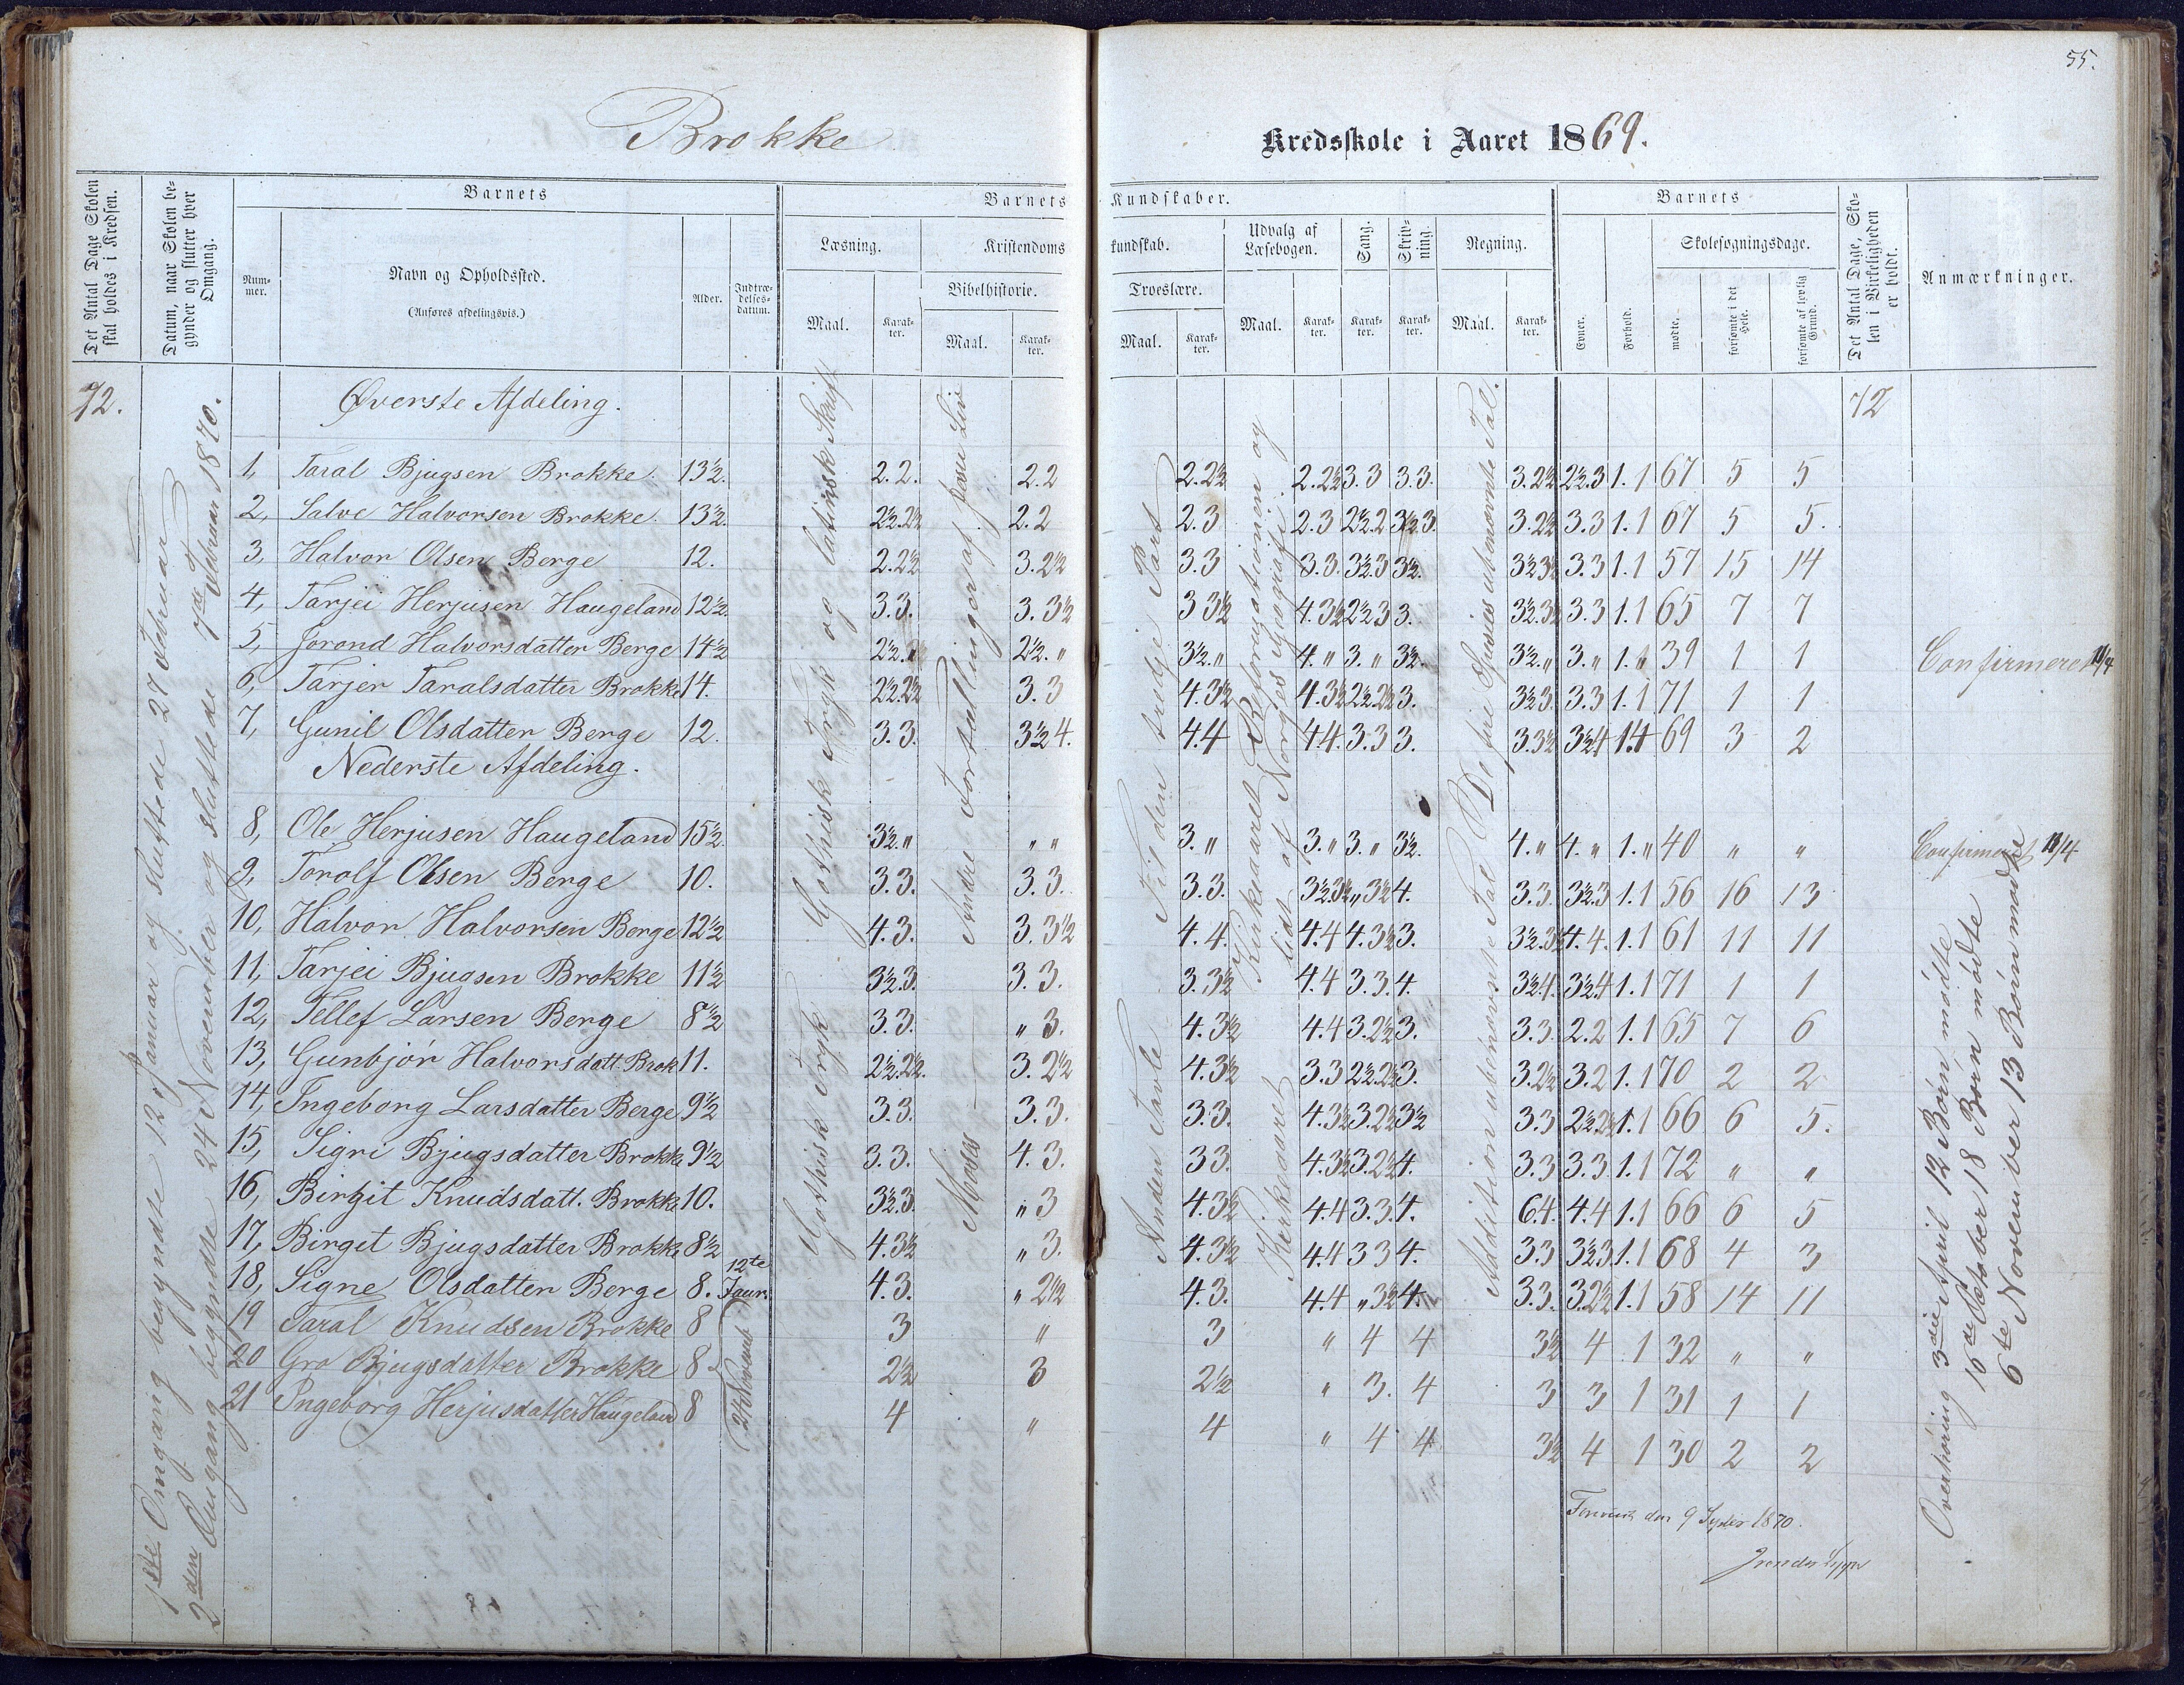 55.
Brokke
Kredsskole i Aaret 1869.
Det Antal Dage Skolen skal holdes i Kredsen.
Datum, naar Skolen begynder og slutter hver Omgang.
Barnets
Nummer.
Navn og Opholdssted.
(Anføres afdelingsvis.)
Alder.
Indtrædelsesdatum.
Barnets Kundskaber.
Læsning.
Maal.
Karakter.
Kristendomskundskab.
Bibelhistorie.
Maal.
Karakter.
Troeslære.
Maal.
Karakter.
Udvalg af Læsebogen.
Maal.
Karakter.
Sang.
Karakter.
Skrivning.
Karakter.
Regning.
Maal.
Karakter.
Barnets
Evner.
Forhold.
Skolesøgningsdage.
mødte.
forsømte i det Hele.
forsømte af lovlig Grund.
Det Antal Dage, Skolen i Virkeligheden er holdt.
Anmærkninger.
72.
1ste Omgang begyndte 12 Januar og sluttede 27 Februar
2den Omgang begyndte 24 November og sluttede 7de Februar 1870.
Øverste Afdeling.
72
1, Taral Bjugsen Brokke. 13½. 2.2. 2.2 2.2½ 2.2½ 3.3 3.3. 3.2½ 2½.3 1.1 67 5 5
2, Salve Halvorsen Brokke. 13½. 2½.2½ 2.2 2.3 2.3 2½.2 3½.3. 3.2½ 3.3 1.1 67 5 5.
3, Halvor Olsen Berge 12. 2.2½ 3.2½ 3.3 3.3. 3½.3 3½. 3½.3½ 3.3 1.1 57 15 14
4, Tarjei Herjusen Haugeland 12½. 3.3. 3.3½ 3 3½ 4.3½ 2½3 3. 3½.3½ 3.3 1.1 65 7 7
5, Jorond Halvorsdatter Berge 14½ 2½.„ 2½.„ 3½.„ 4.„ 3.„ 3½. 3½.„ 3.„ 1.„ 39 1 1 Confirmeret 11/4
6, Tarjer Taralsdatter Brokke 14. 2½.2½ 3.3 4.3½ 4.3½ 2½.2½ 3. 3½3. 3.3 1.1 71 1 1
7, Gunil Olsdatter Berge 12. 3.3. 3½4. 4.4 4.4. 3.3 3. 3.3½ 3½4 1.1 69 3 2
Nederste Afdeling.
8, Ole Herjusen Haugeland 15½. 3½.„ „ „ 3.„ 3.„ 3.„ 3½. 4.„ 4.„ 1.„ 40 „ „ Confirmeret 11/4
9, Torolf Olsen Berge 10. 3.3. 3.3. 3.3. 3½3½ „3½ 4. 3.3. 3½.3 1.1 56 16 13
10, Halvor Halvorsen Berge 12½ 4.3. 3.3½ 4.4. 4.4 4.3½ 3. 3½.3½ 4.4. 1.1 61 11 11
11, Tarjei Bjugsen Brokke 11½ 3½.3. 3.3. 3.3½ 4.4 3.3. 4. 3½4. 3½4 1.1 71 1 1
12, Tellef Larsen Berge 8½ 3.3. „ 3. 4.3½ 4.4 3.2½ 3. 3.3. 2.2 1.1 65 7 6
13, Gunbjør Halvorsdatt. Brok 11. 2½.2½. 3.2½ 4.3½ 3.3 2½.2½ 3. 3.2½ 3.2 1.1 70 2 2
14, Ingeborg Larsdatter Berge 9½ 3.3. 3.3. 3.3. 4.3½ 3.2½ 3½ 3.3 2½.2½ 1.1 66 6 5.
15, Sigri Bjugsdatter Brokke 9½ 3.3. 4.3. 33. 4.3½ 3.2½ 4. 3.3 3.3. 1.1 72 „ „
16, Birgit Knudsdatt. Brokke 10. 3½.3. „ 3 4.3½ 4.4 3.3. 4. 6.4. 4.4 1.1 66 6 5
17, Birget Bjugsdatter Brokke 8½ 4.3½ „ 3. 4.3½ 4.4 3 3 4. 3.3 3½3 1.1 68 4 3
18, Signe Olsdatter Berge 8. 12te Janr. 4.3. „ 2½ 4.3. 4.4 „3½ 4. 3.3. 3.2½ 1.1 58 14 11
19 Taral Knudsen Brokke 8 3 „ 3 „ 4 4 3½ 4 1 32 „ „
20 Gro Bjugsdatter Brokke 8 2½ 3 2½ „ 3. 4 3 3 1 31 1 1
21 Ingeborg Herjusdatter Haugeland 8 4 „ 4 „ 4 4 3½ 4 1 30 2 2
24 Novemb
Gothisk Tryk og latinsk Skrift
Gothisk Tryk
Andre Fortællinger af Jesu Liv
Moses
Til den tredje Part
Anden Tavle
Kirkeaaret Reformationen og
lidt af Norges Geografi.
Kirkeaaret
De fire Species ubenævnte Tal.
Addition ubenævnte Tal
Overhøring 3die April 12 Børn mødte
16de October 18 Børn mødte
6te November 13 Børn mødte
den 9 1870.